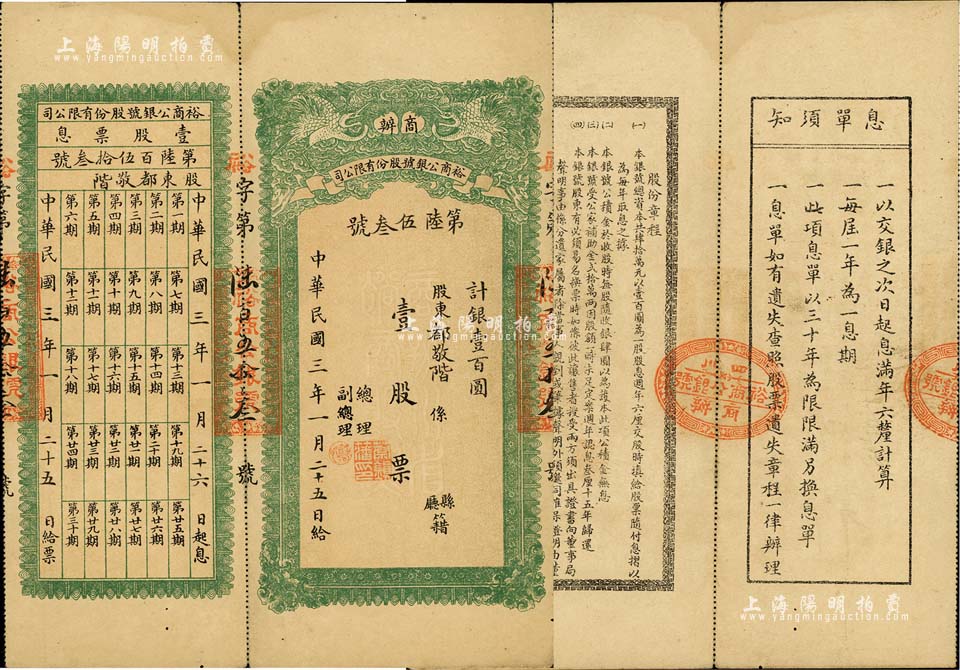 上海陽明拍賣
www.yangmingauction.com
裕商公銀號股份有限公司
壹股票息
第陸百伍拾叁號
股東都敬階
中華民國三年一月二十六日起息
第一期 第七期 第十三期 第十九期 第廿五期
第二期 第八期 第十四期 第二十期 第廿六期
第三期 第九期 第十五期 第廿一期 第廿七期
第四期 第十期 第十六期 第廿二期 第廿八期
第五期 第十一期 第十七期 第廿三期 第廿九期
第六期 第十二期 第十八期 第廿四期 第三十期
中華民國三年一月二十五日給票
字第陸百五拾叁號
商辦
裕商公銀號股份有限公司
第陸伍叁號
計銀壹百圓
股東都敬階係
縣廳籍
壹股票
總理
副總理
中華民國三年一月二十五日給
股份章程
(一)本銀號總資本共肆拾萬元以壹百圓為一股股息週年六厘交股時填給股票隨付息摺以
為每年取息之據
(二)本銀號公積金於收股時每股隨收銀肆圓以為護本此項公積金無息
(三)本銀號受公家補助金弍拾萬兩因股額一時未足定案週年認息叁厘十五年歸還
(四)本銀號股東有必須易名換票時如係彼此讓售者授受兩方須出具證書向董事局
息單須知
一以交銀之次日起息滿年六釐計算
一每屆一年為一息期
一此項息單以三十年為限限滿另換息單
一息單如有遺失查照股票遺失章程一律辦理
四川
裕商公銀號
商辦
上海陽明拍賣
www.yangmingauction.com
上海陽明拍賣
www.yangmingauction.com